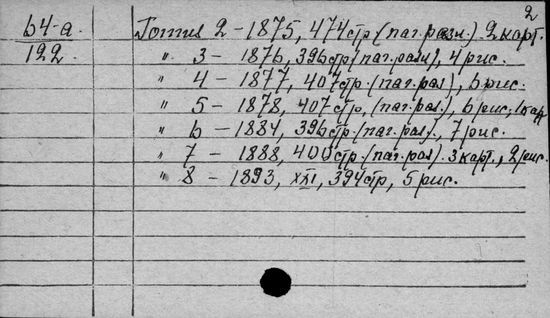 2
64-а. Tomus 2 - 1875, 474 стр. (паг. разн.) 2 карт.
122 " 3 - 1876, 396 стр. (паг. разн), 4 рис.
" 4 - 1877, 407 стр. (паг. раз), 6 рис.
" 5 - 1878, 407 стр. (паг. раз.), 6 рис, 1 карт
" 6 - 1884, 396 стр. (паг. раз)., 7 рис.
" 7 - 1888, 400 стр. (паг. раз). 3 карт., 2 рис.
" 8 - 1893, XXI, 394 стр, 5 рис.